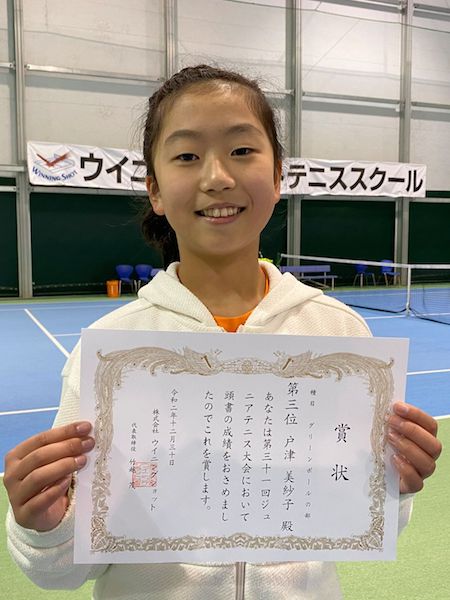 WINNING SHOT
ウイニ
テニススクール
賞状
種目 グリーンボールの部
第三位 戸津 美紗子 殿
あなたは第三十一回ジュ
ニアテニス大会において
頭書の成績をおさめまし
たのでこれを賞します。
令和二年十二月三十日
株式会社 ウイニングショット
代表取締役 竹